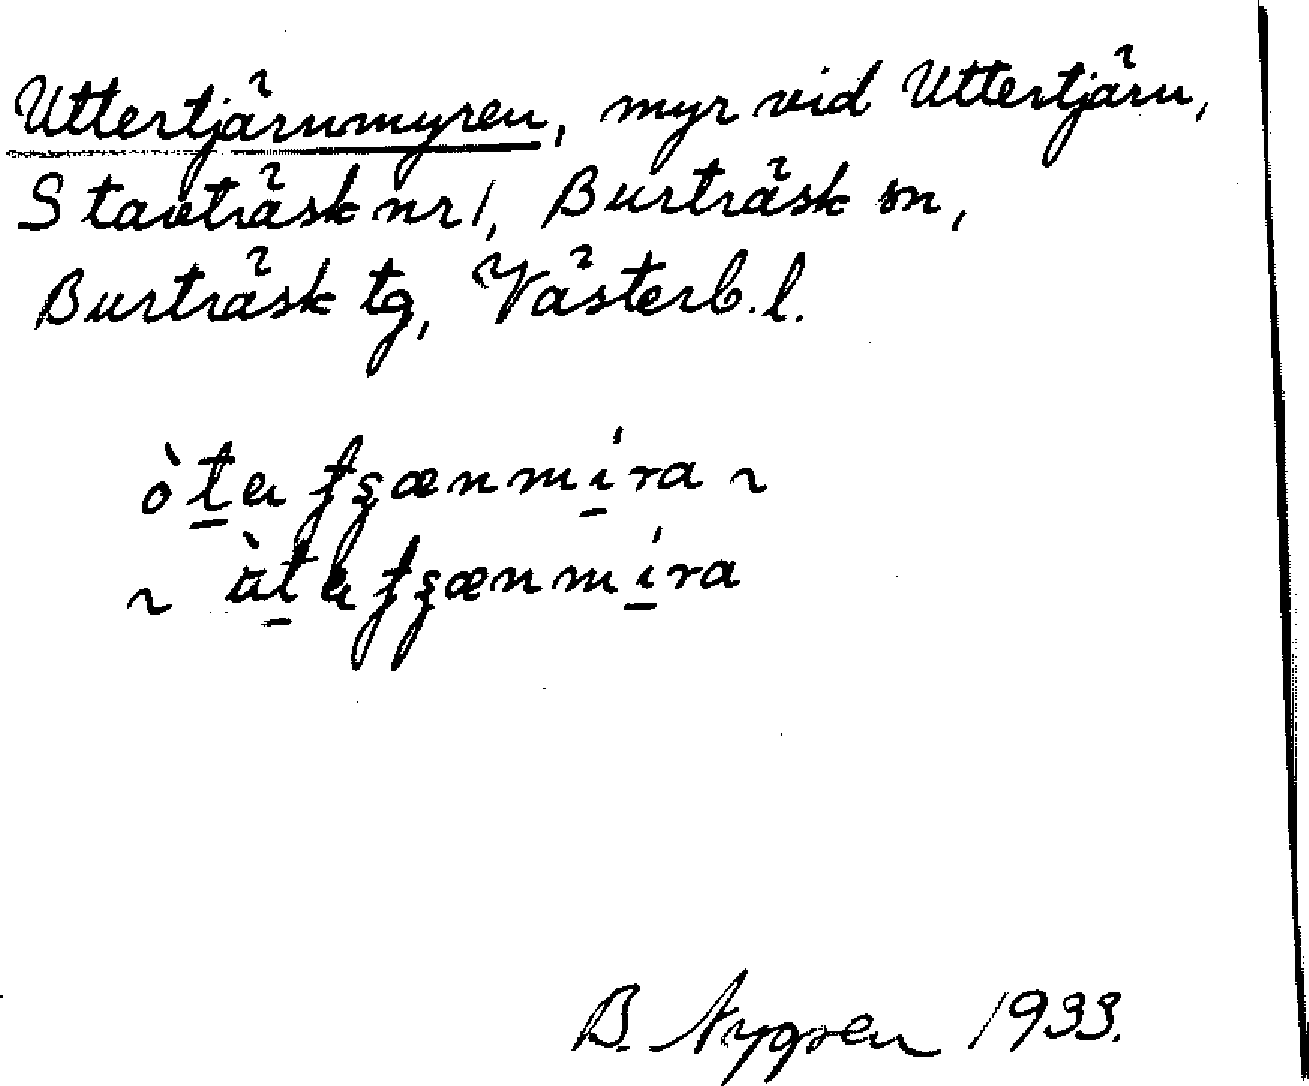 Uttertjärnmyren, myr vid Uttertjärn,
Stavträsk nr 1, Burträsk sn,
Burträsk tg, Västerb. l.
B. Nygren 1933.